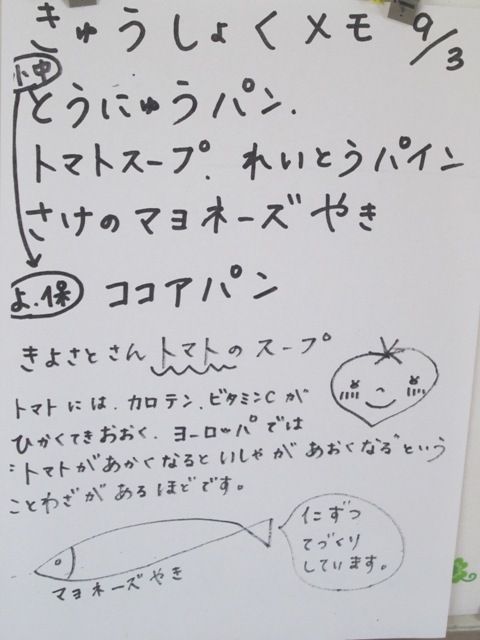 きゅうしょくメモ 9/3
小中
とうにゅうパン.
トマトスープ. れいとうパイン
さけのマヨネーズやき
よ.保 ココアパン
きよさとさん トマトのスープ
トマトには.カロテン.ビタミンCが
ひかくてきおおく.ヨーロッパでは
"トマトがあかくなるといしゃがあおくなる"という
ことわざがあるほどです。
マヨネーズやき
仁ずつ
てづくり
しています。